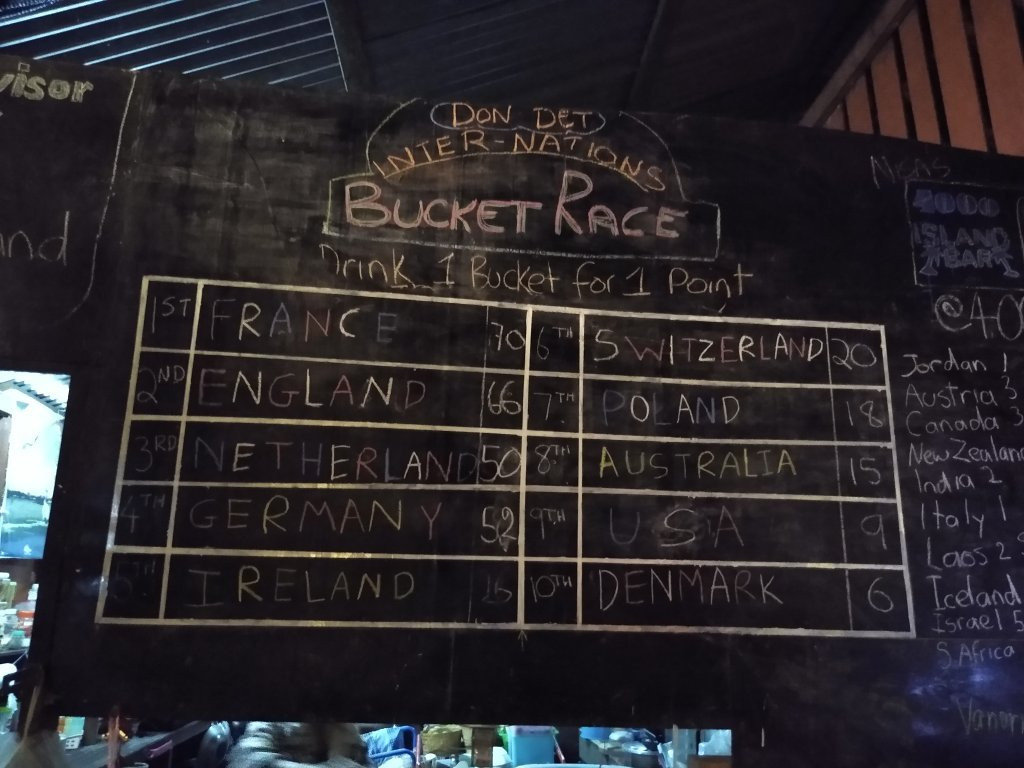 visor
and
DON DET
INTER-NATIONS
BUCKET RACE
Drink 1 Bucket for 1 Point
1ST FRANCE 70
2ND ENGLAND 66
3RD NETHERLAND 50
4TH GERMANY 52
5TH IRELAND
6TH SWITZERLAND 20
7TH POLAND 18
8TH AUSTRALIA 15
9TH USA 9
10TH DENMARK 6
4000
ISLAND
@4:00
Jordan 1
Austria 3
Canada 3
New Zealand
India 2
Italy 1
Laos 2
Iceland
Israel 5
S Africa